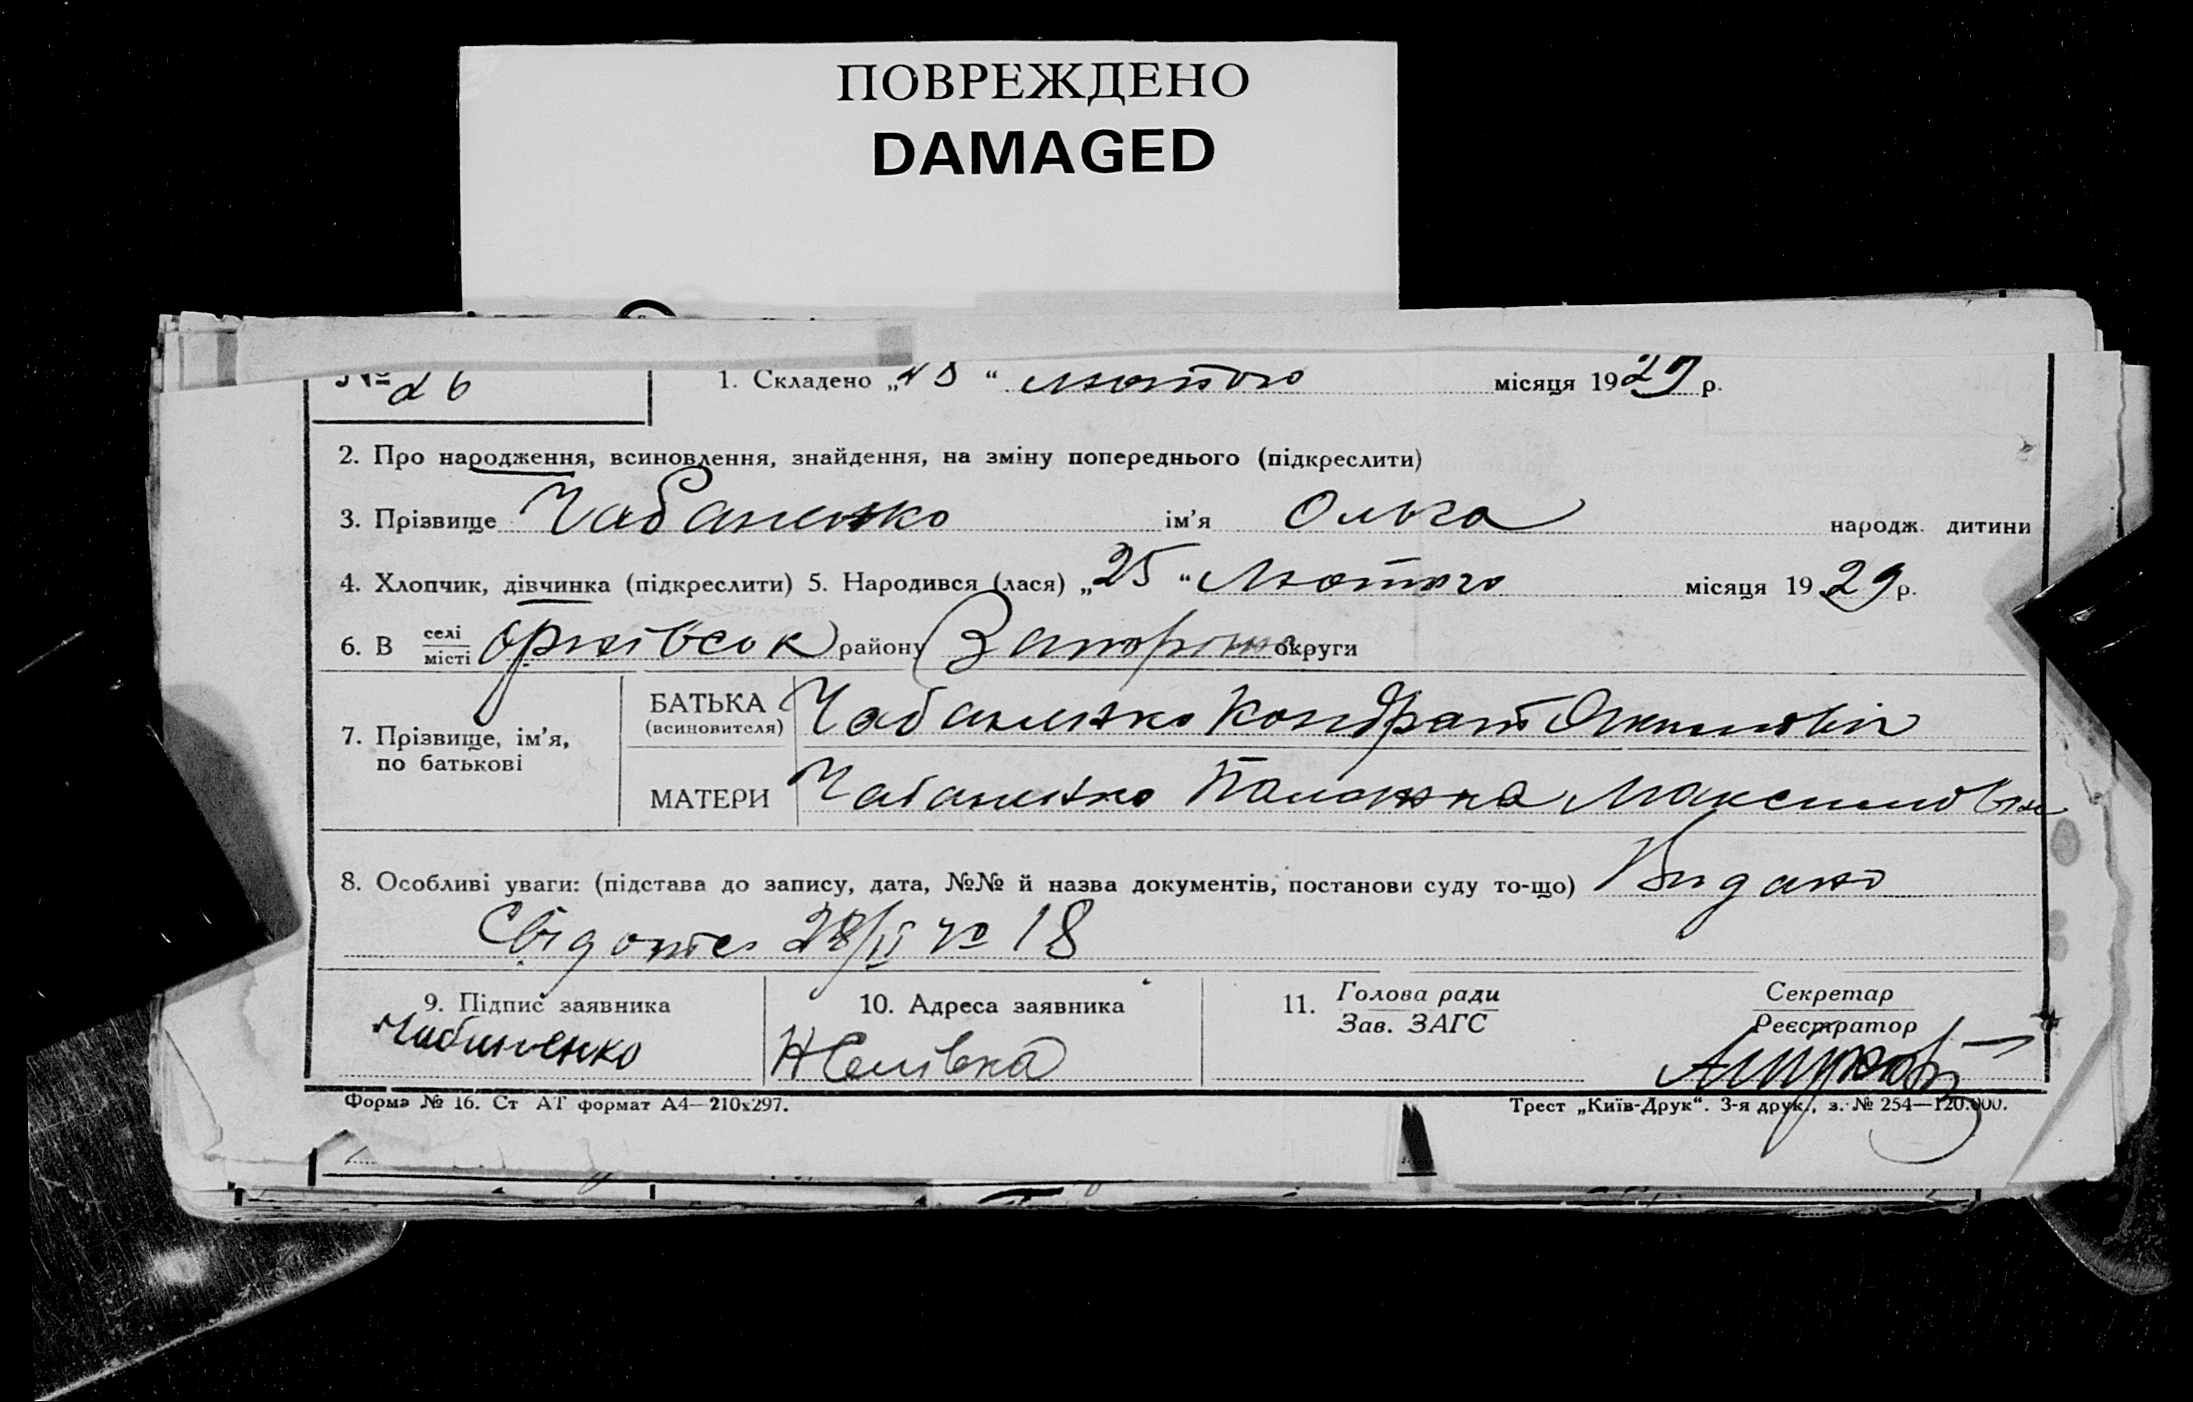 ПОВРЕЖДЕНО
DAMAGED
№ 26
1. Складено „28“ лютого місяця 1929 р.
2. Про народження, всиновлення, знайдення, на зміну попереднього (підкреслити)
3. Прізвище Чабаненко ім'я Ольга народж. дитини
4. Хлопчик, дівчинка (підкреслити) 5. Народився (лася) „25“ Лютого місяця 1929 р.
6. В селі / місті району Запоріж округи
7. Прізвище, ім'я, по батькові
БАТЬКА (всиновителя) Чабаненко Кондрат
МАТЕРИ Чабаненко Максимовна
8. Особливі уваги: (підстава до запису, дата, №№ й назва документів, постанови суду то-що) Видано
28/II № 18
9. Підпис заявника
Чабаненко
10. Адреса заявника
11. Голова ради / Зав. ЗАГС
Секретар / Реєстратор
Форма № 16. Ст АТ формат А4—210x297.
Трест „Київ-Друк“. 3-я друк., з. № 254—120.000.